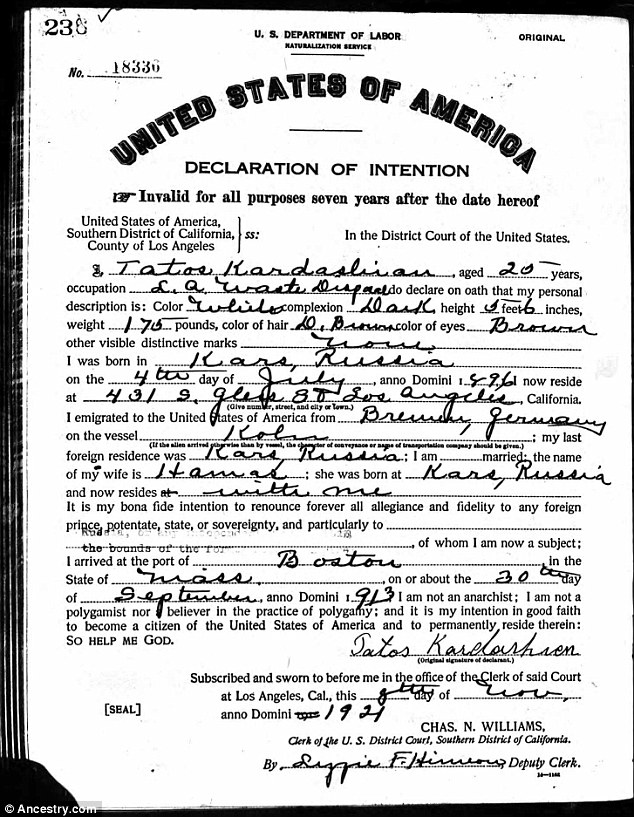 238
U. S. DEPARTMENT OF LABOR
NATURALIZATION SERVICE
ORIGINAL
No. 18336
UNITED STATES OF AMERICA
DECLARATION OF INTENTION
☞ Invalid for all purposes seven years after the date hereof
United States of America,
Southern District of California,
County of Los Angeles
} ss:
In the District Court of the United States.
I, Tatos Kardashian, aged 25 years,
occupation L.A. Waste Disposal do declare on oath that my personal
description is: Color White complexion Dark height 5 feet 6 inches,
weight 175 pounds, color of hair D. Brown color of eyes Brown
other visible distinctive marks none
I was born in Kars, Russia
on the 4th day of July, anno Domini 1896; now reside
at 431 S. Gless St Los Angeles, California.
(Give number, street, and city or town.)
I emigrated to the United States of America from Bremen, Germany
on the vessel Koln; my last
(If the alien arrived otherwise than by vessel, the character of conveyance or name of transportation company should be given.)
foreign residence was Kars, Russia; I am married; the name
of my wife is Hamas; she was born at Kars, Russia
and now resides at with me
It is my bona fide intention to renounce forever all allegiance and fidelity to any foreign
prince, potentate, state, or sovereignty, and particularly to
Russia, or any independent
the bounds of the for, of whom I am now a subject;
I arrived at the port of Boston, in the
State of Mass., on or about the 30th day
of September, anno Domini 1913; I am not an anarchist; I am not a
polygamist nor a believer in the practice of polygamy; and it is my intention in good faith
to become a citizen of the United States of America and to permanently reside therein:
SO HELP ME GOD.
Tatos Kardashian
(Original signature of declarant.)
Subscribed and sworn to before me in the office of the Clerk of said Court
at Los Angeles, Cal., this day of Nov,
[SEAL]
anno Domini 1921
CHAS. N. WILLIAMS,
Clerk of the U. S. District Court, Southern District of California.
By Lizzie F. , Deputy Clerk.
© Ancestry.com